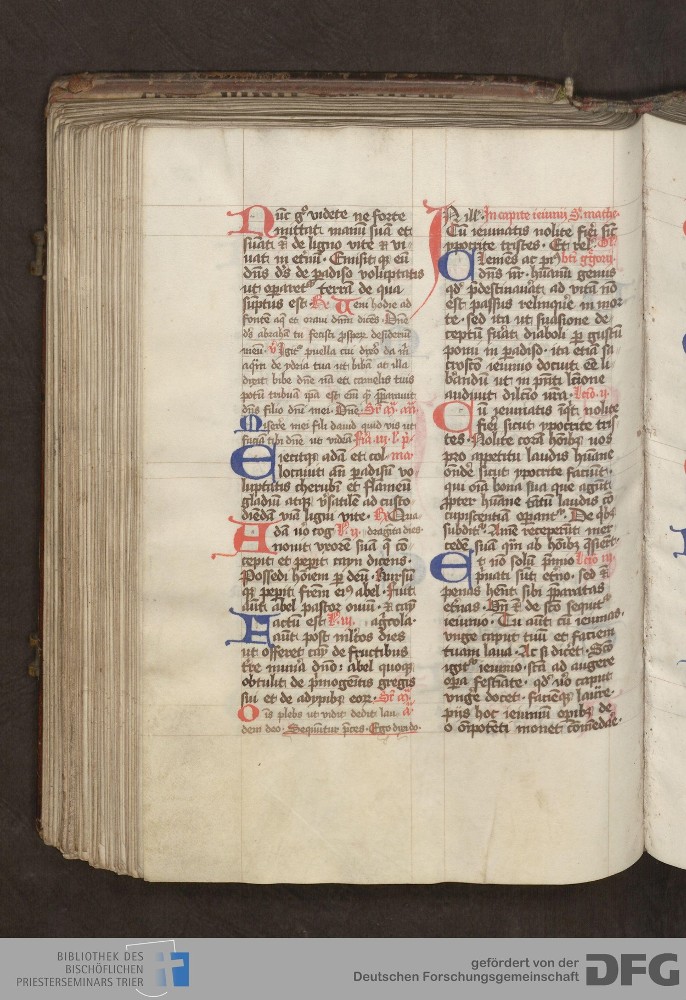 Nūc gͦ videte ne forte
mittat manū suā et
sūat ⁊ de ligno vite ⁊ vi
uat in etnū. Emisit qꝫ eū
dn̄s dꝰs de padiso voluptatis
ut opaetꝰ terrā de qua
sūptus est. Rx Veni hodie ad
fontē aq̄ et oraui dnm̄ dices. Dn̄e
dꝰs abrahā tu fecisti prosper desideriū
meū. v̄ Igitꝰ puella cui dixo da m̄
aq̄m de ydria tua ut bibā at illa
dixit bibe dn̄e nā et camelis tuis
potū tribuā ip̄a est em̄ q̄ p̄parauit
dn̄s filio dn̄i mei. Dn̄e.
Miſere mei fili dauid quid vis ut
faciā tibi dn̄e ut videā. Fia iii. l. p̄.
Eiecitqꝫ adā et col
locauit an̄ padisum vo
luptatis cherubin et flameū
gladiū atqꝫ vsatilē ad custo
diēdā viā ligni vite. Rx Qua
Adā uo cog l. ii. dragīta dies.
nouit vxorē suā q̄ cō
cepit et pepit cayn dicens.
Possedi hoīem p deū. Rursū
qꝫ pepit frēm eiꝰ abel. Fuit
aut abel pastor ouiū. ⁊ cayn
Factū est l. iii. agcola.
aut post ml̄tos dies
ut offeret cay de fructibus
tre munā dn̄o: abel quoqꝫ
obtulit de p̄mogētis gregis
sui et de adypibꝫ eoꝝ.
Ois plebs ut vidit dedit lau
dem deo. Sequūtur p̄ces. Ego dixi do.
IN ill̄. In capite ieiunij. S. mathe.
Cū ieiunatis nolite fiei sic
ypocrite tristes. Et rel. Oꝭ.
Clemēs ac piꝰ bti ggorij.
dn̄s nr̄. hūanū genus
qd̄ p̄destinauit ad vitā nō
est passus relinqꝫe in mor
te. sed ita ut suasione de
ceptū fuat diaboli p gustū
pomi in padiso. ita etiā sa
crosctō ieiunio docuit eē li
bandū ut in p̄nti lc̄ione
audiuit dilcīo vr̄a. Lc̄io. ii.
Cū ieiunatis iqͥt nolite
fiei sicut ypocrite tris
tes. Nolite corā hoībꝫ uos
pro appetitu laudis hūane
ondē sicut ypocrite faciūt.
qui oīa bona sua que agūt
ppter hūane tm̄ laudis cō
cupiscentiā opantꝰ. De qbꝫ
subditꝰ. Amē receperūt mer
cedē suā qm̄ ab hoībꝫ qsiert.
Et nō solū p̄mio Lc̄io iii.
p̄uati sūt etn̄o. sed ⁊
penas hēnt sibi p̄paratas
etn̄as. Bn̄ ⁊ de scō sequitꝰ
ieiunio. Tu aūt cū ieiunas.
vnge caput tuū et faciem
tuam laua. Ac si dicet. Scō
igitꝰ ieiunio. stā ad augere
opa festiate. qd̄ uo caput
vngē docet. faciēqꝫ lauare.
piis hoc ieiuniū opibꝫ de
o oīpotēti monet cōmēdae.
BIBLIOTHEK DES
BISCHÖFLICHEN
PRIESTERSEMINARS TRIER
gefördert von der
Deutschen Forschungsgemeinschaft
DFG